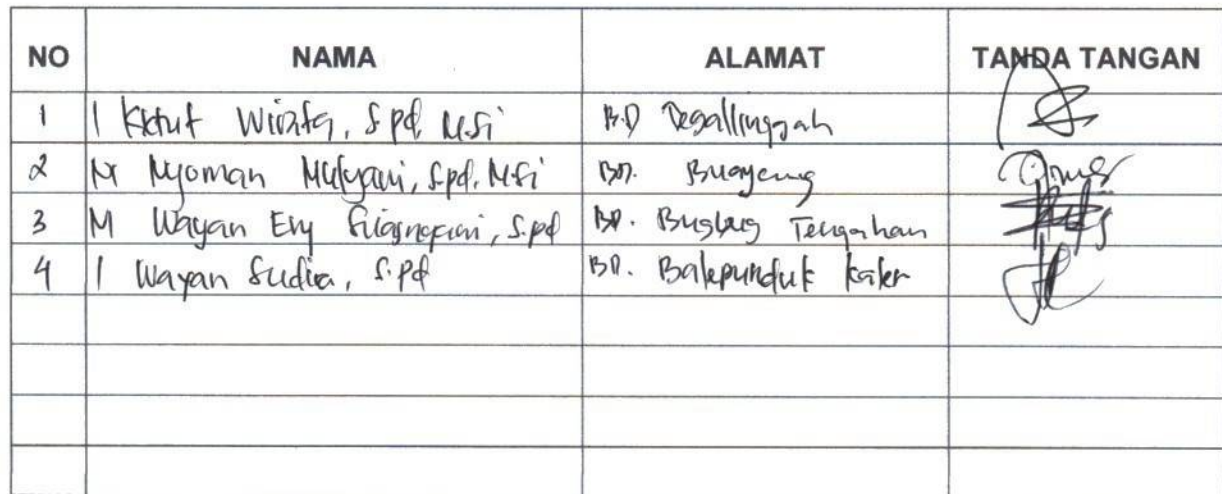 NO NAMA ALAMAT TANDA TANGAN
1 I Ketut Wirata, S.pd, M.Si B.D Tegallinggah
2 Ni Nyoman Mulyani, S.pd, M.Si BD. Buayang
3 Ni Wayan Eny, S.pd BD. Buglug Tengahan
4 I Wayan Sudira, S.Pd BD. Balepunduk Kaler